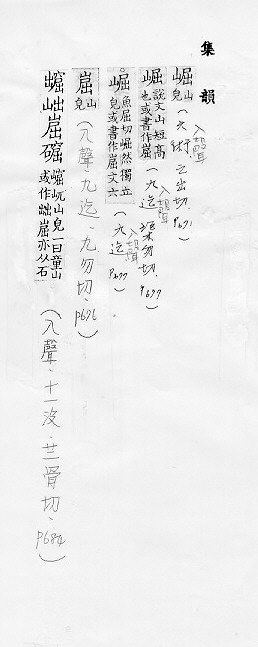 集韻
崛山皃(入聲.六術.之出切.P671)
崛說文山短高也或書作崫(入聲.九迄.渠勿切.P677)
崛魚屈切崛然獨立皃或書作崫文六(入聲.九迄.P677)
崫山皃(入聲.九迄.九勿切.P676)
崛岉山皃一曰童山或作崫亦从石
(入聲.十一沒.苦骨切.P684)